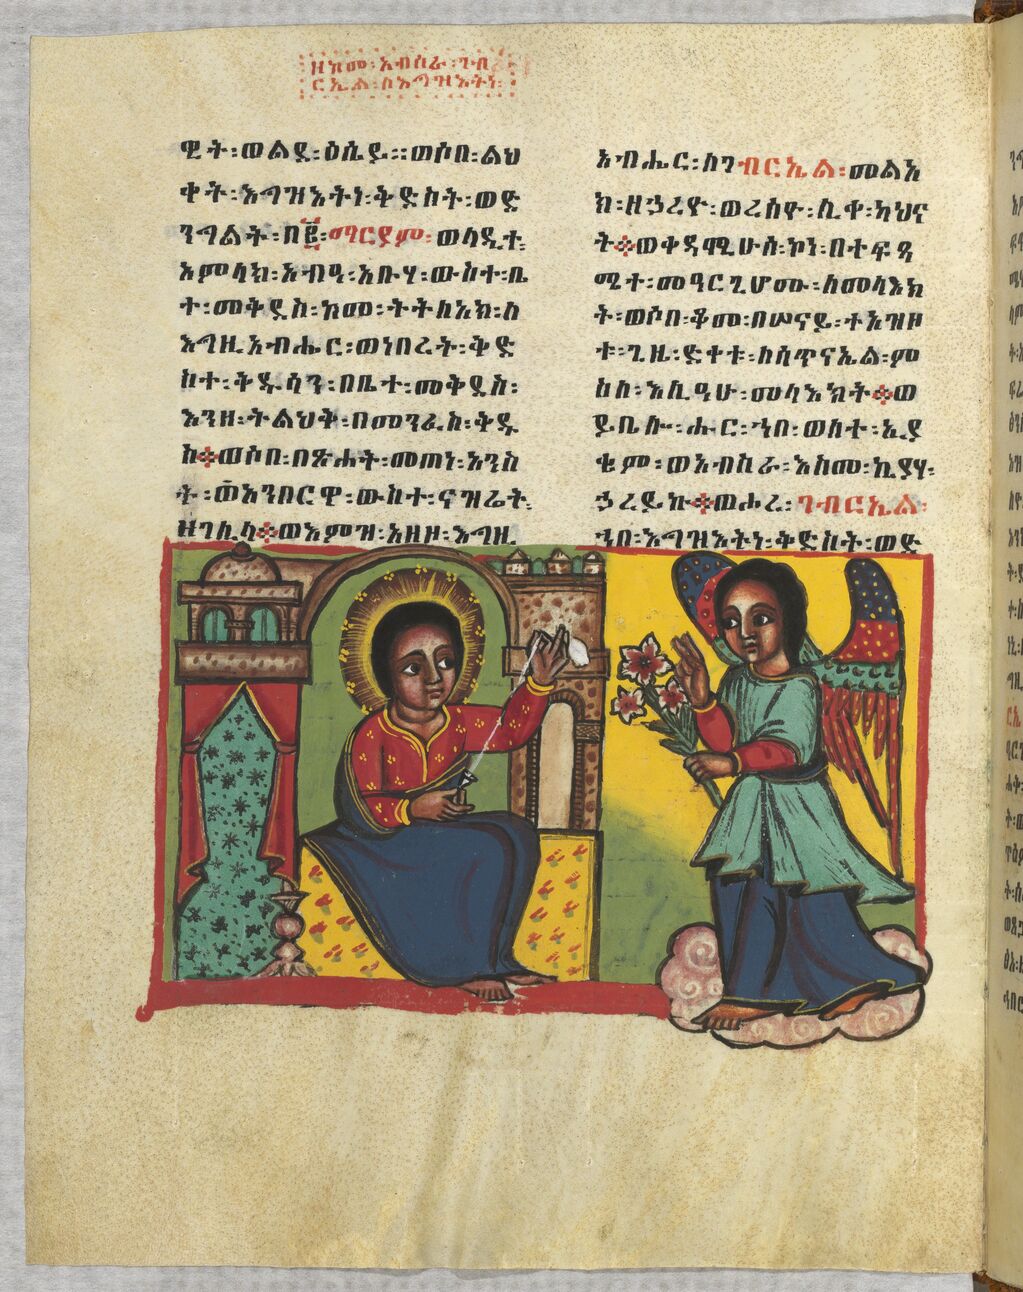 ዘከመ፡አብሰራ፡ገብ
ርኤል፡ለእግዝእትነ፡
ዊት፡ወልደ፡ዕሴይ፡፡ወሶበ፡ልህ
ቀት፡እግዝእትነ፡ቅድስት፡ወድ
ንግልት፡በ፪፡ማርያም፡ወላዲተ፡
አምላክ፡አብዓ፡አቡሃ፡ውስተ፡ቤ
ተ፡መቅደስ፡ከመ፡ትትለአክ፡ለ
እግዚአብሔር፡ወነበረት፡ቅድ
ስተ፡ቅዱሳን፡በቤተ፡መቅደስ፡
እንዘ፡ትልህቅ፡በመንፈስ፡ቅዱ
ስ፡ወሶበ፡በጽሐት፡መጠነ፡አንስ
ት፡ወአንበርዋ፡ውስተ፡ናዝሬት፡
ዘገሊላ፡ወእምዝ፡አዘዞ፡እግዚ
አብሔር፡ለገብርኤል፡መልአ
ክ፡ዘኃረዮ፡ወረሰዮ፡ሊቀ፡ካህና
ት፡ወቀዳሚሁሰ፡ኮነ፡በተፍጻ
ሜተ፡መዓርጊሆሙ፡ለመላእክ
ት፡ወሶበ፡ቆመ፡በሠናይ፡ተአዝዞ
ቱ፡ጊዜ፡ድቀቱ፡ለሰጥናኤል፡ም
ስለ፡እሊዓሁ፡መላእክት፡ወ
ይቤሎ፡ሑር፡ኀበ፡ወለተ፡ኢያ
ቄም፡ወአብስራ፡እስመ፡ኪያሃ፡
ኃረይኩ፡ወሐረ፡ገብርኤል፡
ኀበ፡እግዝእትነ፡ቅድስት፡ወድ